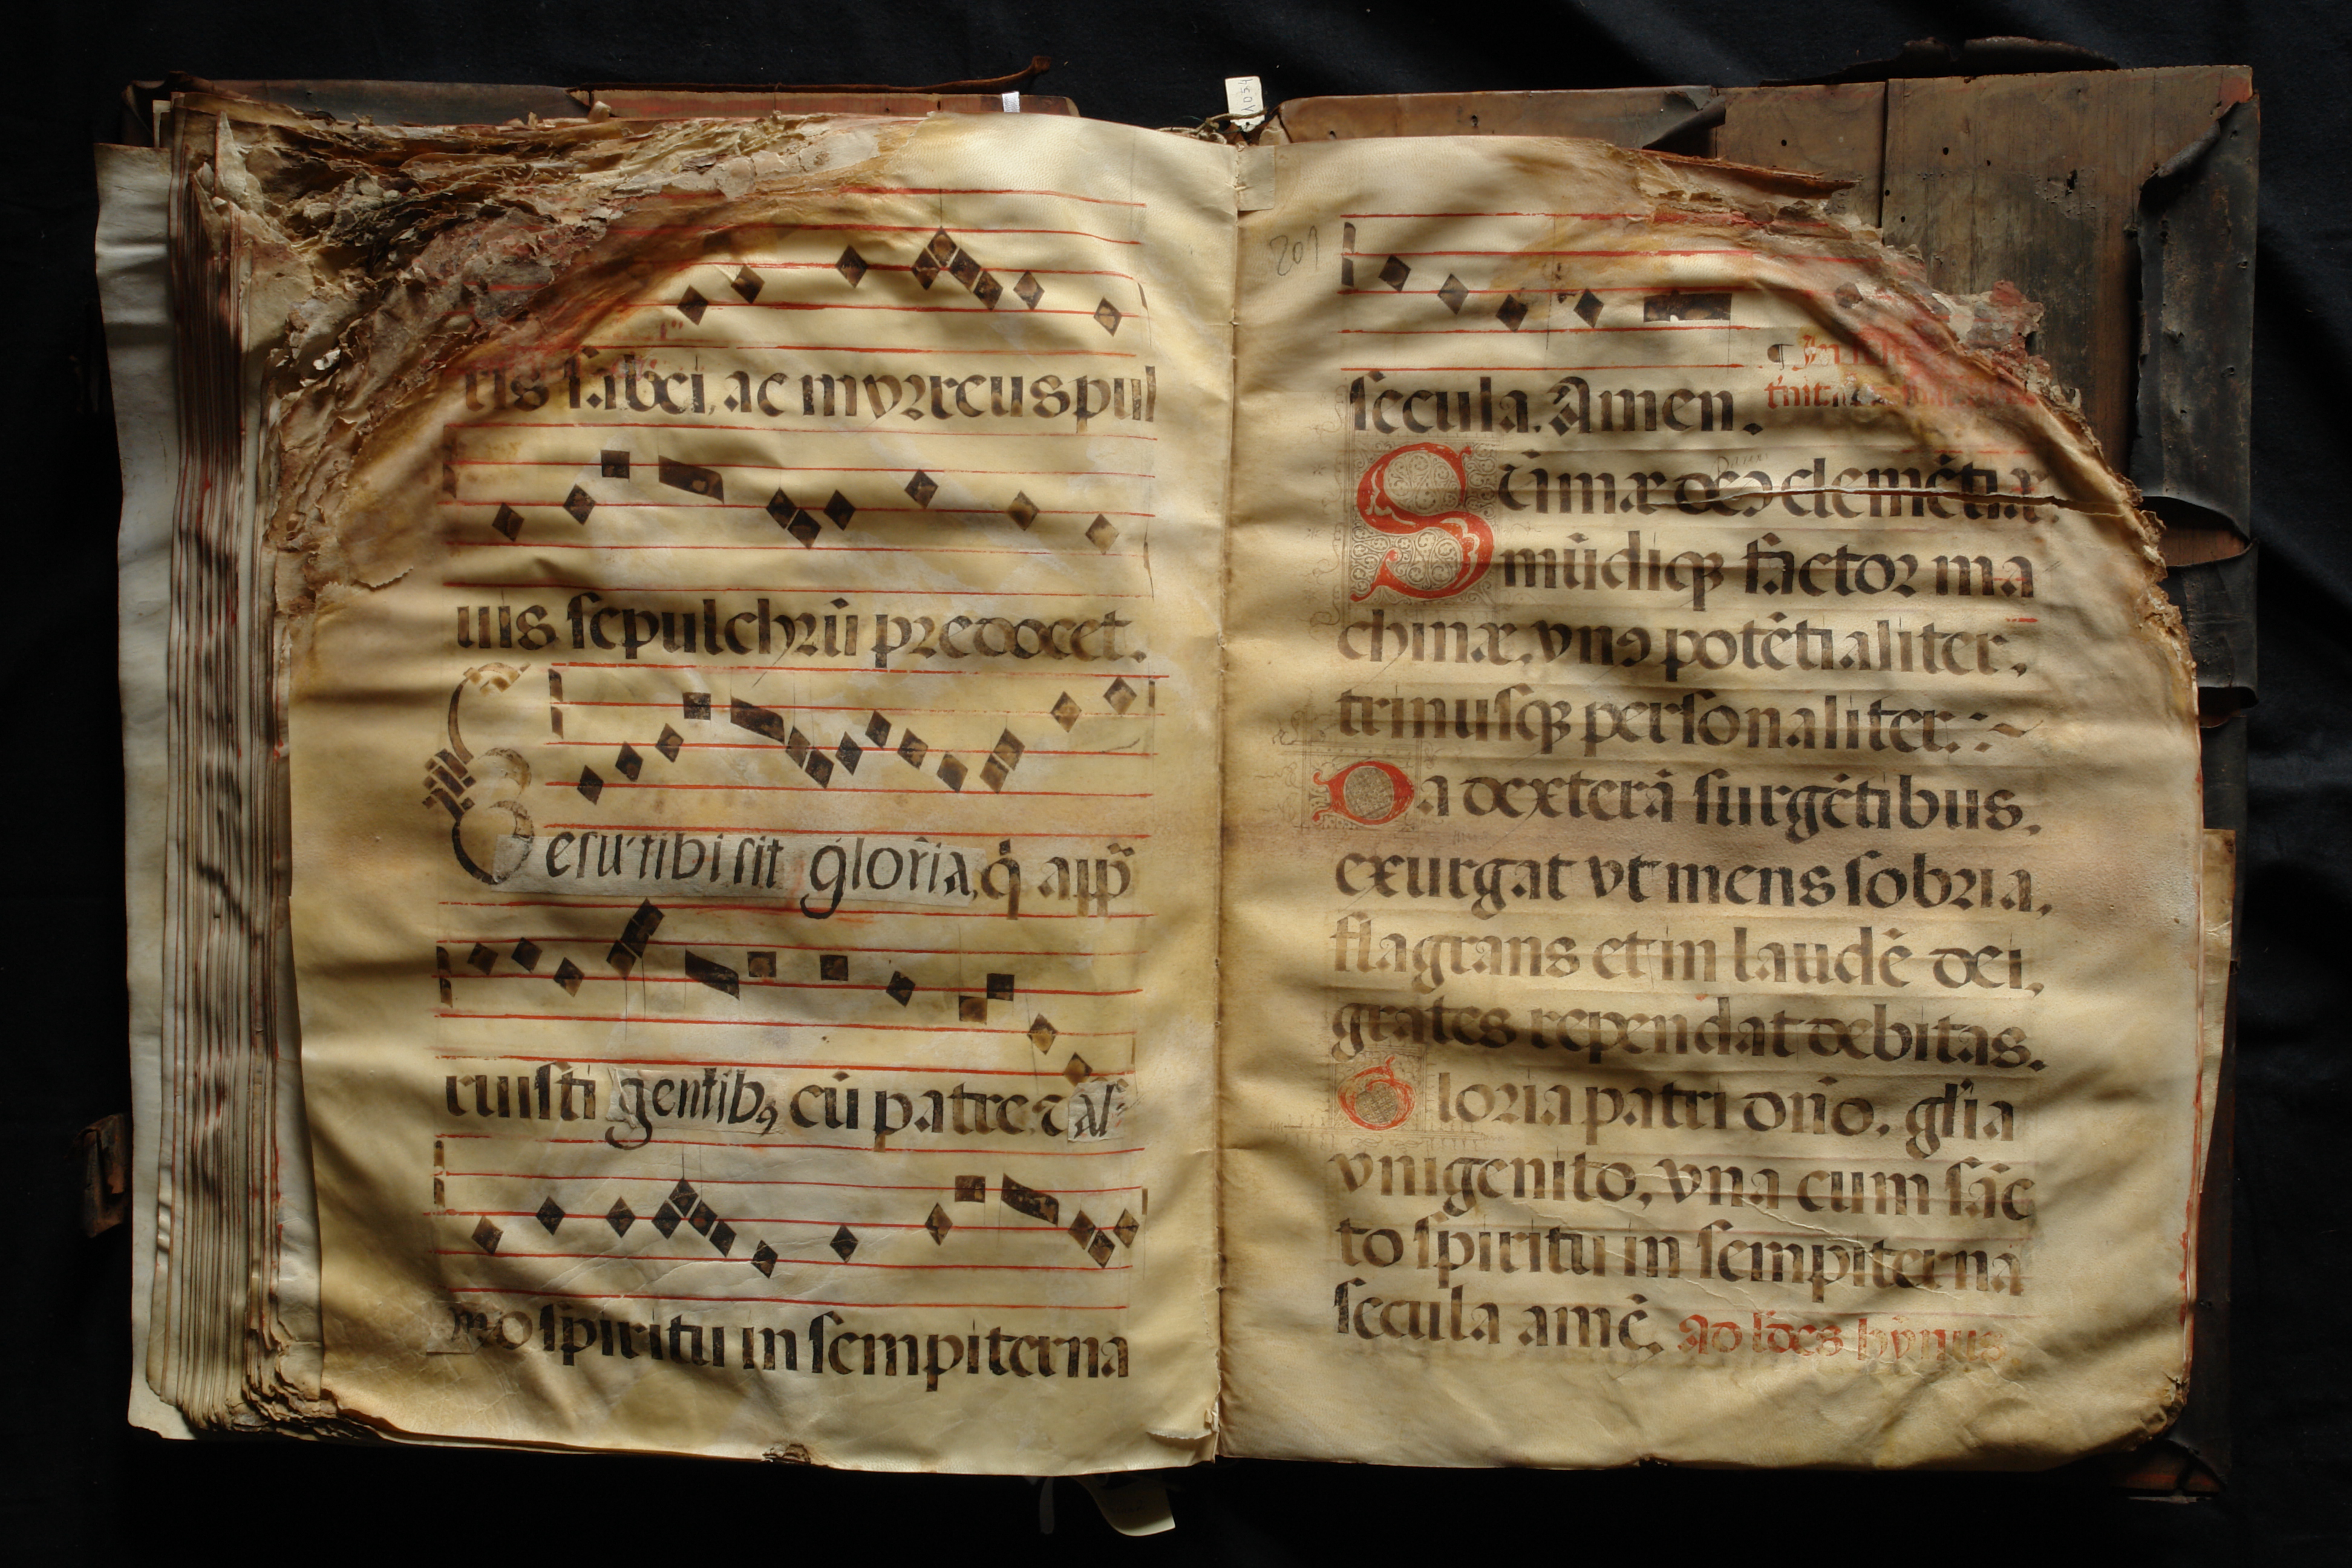 ris sabei, ac myrreus pul
uis sepulchrū predocet.
Iesu tibi sit gloria, q̄ app̄
ruisti gentibꝰ cū patre ⁊ al
mo spiritu in sempiterna
1054
201
secula. Amen.
Sūmæ deꝰ clemētiæ,
mūdiqꝫ factor ma
chinæ, vnꝰ potētialiter,
trinusqꝫ personaliter.
Da dexterā surgētibus,
exurgat vt mens sobria,
flagrans et in laudē dei,
grates rependat debitas.
Gloria patri dn̄o, gl̄ia
vnigenito, vna cum sāc
to spiritu in sempiterna
secula amē. Ad l̄des hȳnus.